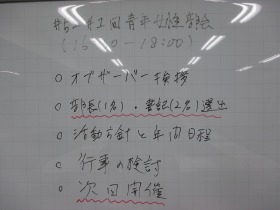 青年女性部会
(16:30-18:00)
○ オブザーバー挨拶
○ 部長(1名)・書記(2名)選出
○ 活動方針と年間日程
○ 行事の検討
○ 次回開催